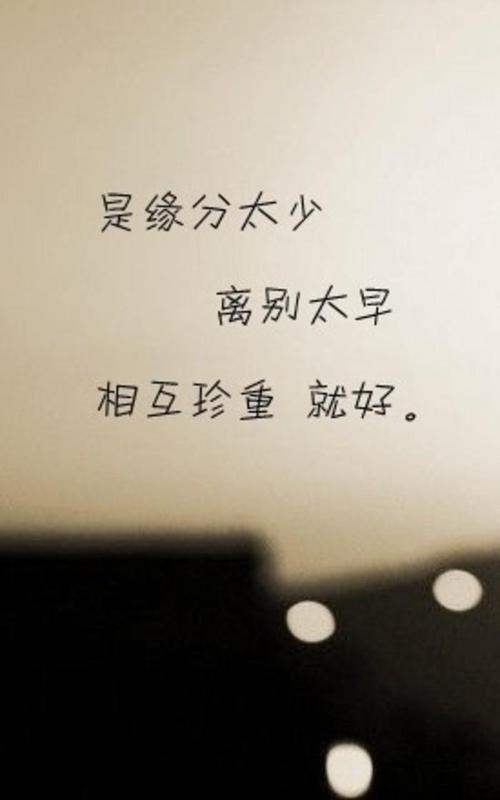 是缘分太少
离别太早
相互珍重 就好。